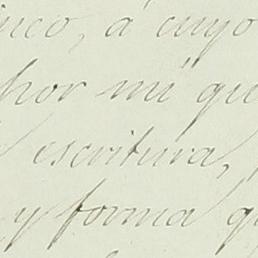 inco, á cuyo
por mi que
escritura,
y forma q